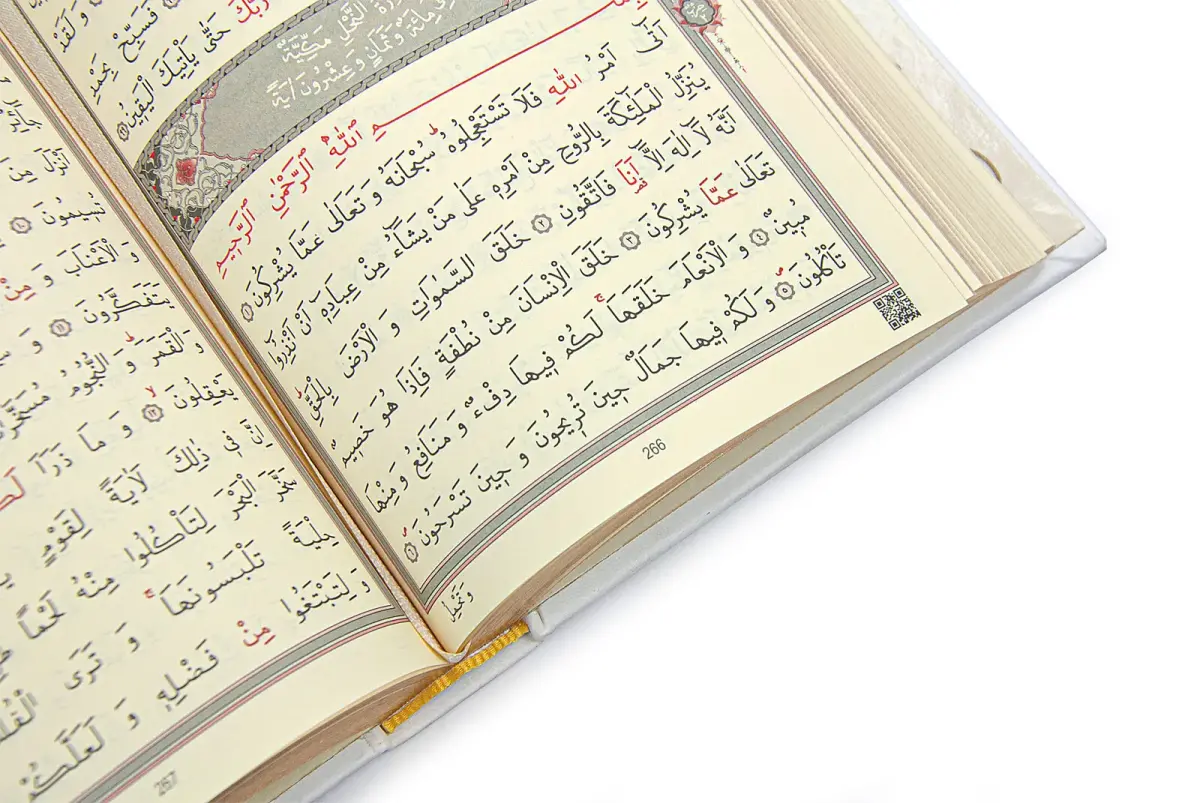 وَ لَقَدْ
فَسَبِّحْ بِحَمْدِ
رَبَّكَ حَتّٰى يَأْتِيَكَ الْيَقٖينُ ﴿٩٩﴾
النَّحْلِ مَكِّيَّةٌ
مِائَةٌ وَ ثَمَانٍ وَ عِشْرُونَ اٰيَةً
بِسْمِ اللّٰهِ الرَّحْمٰنِ الرَّحٖيمِ
اَتٰٓى اَمْرُ اللّٰهِ فَلَا تَسْتَعْجِلُوهُۜ سُبْحَانَهُ وَ تَعَالٰى عَمَّا يُشْرِكُونَ ﴿١﴾
يُنَزِّلُ الْمَلٰٓئِكَةَ بِالرُّوحِ مِنْ اَمْرِهٖ عَلٰى مَنْ يَشَٓاءُ مِنْ عِبَادِهٖٓ اَنْ اَنْذِرُٓوا
اَنَّهُ لَٓا اِلٰهَ اِلَّٓا اَنَا۬ فَاتَّقُونِ ﴿٢﴾ خَلَقَ السَّمٰوَاتِ وَ الْاَرْضَ بِالْحَقِّۜ
تَعَالٰى عَمَّا يُشْرِكُونَ ﴿٣﴾ خَلَقَ الْاِنْسَانَ مِنْ نُطْفَةٍ فَاِذَا هُوَ خَصٖيمٌ
مُبٖينٌ ﴿٤﴾ وَ الْاَنْعَامَ خَلَقَهَاۚ لَكُمْ فٖيهَا دِفْءٌ وَ مَنَافِعُ وَ مِنْهَا
تَأْكُلُونَۖ ﴿٥﴾ وَ لَكُمْ فٖيهَا جَمَالٌ حٖينَ تُرٖيحُونَ وَ حٖينَ تَسْرَحُونَۖ ﴿٦﴾
وَ تَحْمِلُ
266
اَنْزَلَ مِنَ
تُسٖيمُونَ ﴿١٠﴾
وَ الْاَعْنَابَ وَ مِنْ
يَتَفَكَّرُونَ ﴿١١﴾ وَ
وَ الْقَمَرَۜ وَ النُّجُومُ مُسَخَّرَاتٌ
يَعْقِلُونَۙ ﴿١٢﴾ وَ مَا ذَرَاَ لَكُمْ
اِنَّ فٖى ذٰلِكَ لَاٰيَةً لِقَوْمٍ
الْبَحْرَ لِتَأْكُلُوا مِنْهُ لَحْمًا
حِلْيَةً تَلْبَسُونَهَاۚ وَ تَرَى الْفُلْكَ
وَ لِتَبْتَغُوا مِنْ فَضْلِهٖ وَ لَعَلَّكُمْ
267